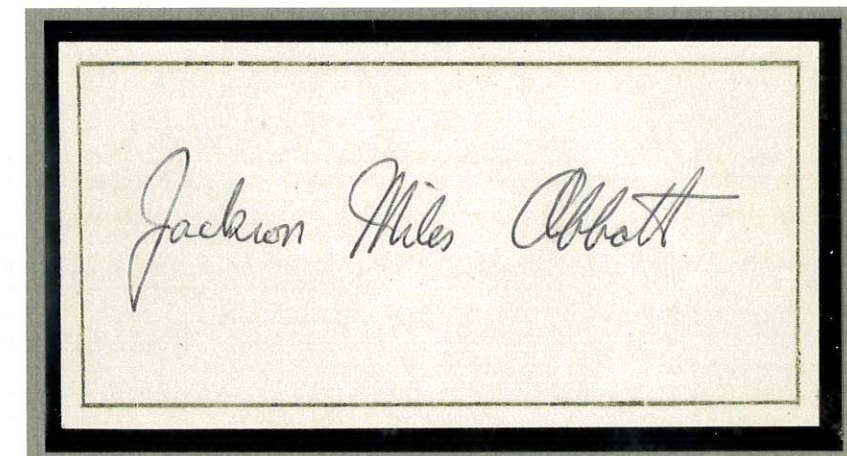 Jackson Miles Abbott